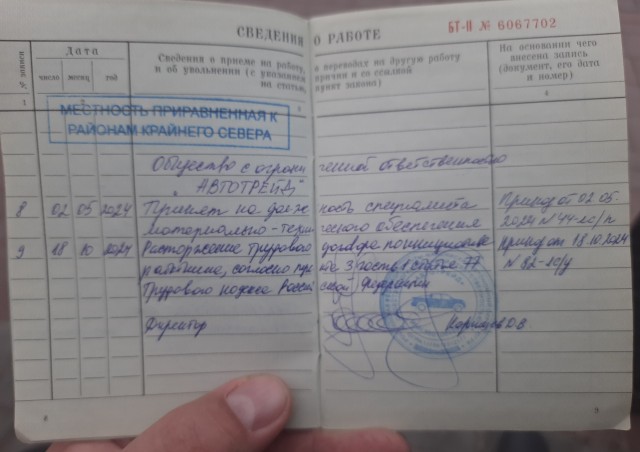 СВЕДЕНИЯ О РАБОТЕ
БТ-II № 6067702
№ записи
Дата
число месяц год
Сведения о приеме на работу, о переводах на другую работу
и об увольнении (с указанием причин и со ссылкой
на статью, пункт закона)
На основании чего
внесена запись
(документ, его дата
и номер)
1 2 3 4
МЕСТНОСТЬ ПРИРАВНЕННАЯ К
РАЙОНАМ КРАЙНЕГО СЕВЕРА
Общество с ограниченной ответственностью
"АВТОТРЕЙД"
8 02 05 2024 Принят на должность специалиста Приказ от 02.05.
материально-технического обеспечения 2024 N 44-лс/п
9 18 10 2024 Расторжение трудового договора по инициативе Приказ от 18.10.2024
работника, согласно пункта 3 часть 1 статье 77 N 82-лс/у
Трудового кодекса Российской Федерации
Директор